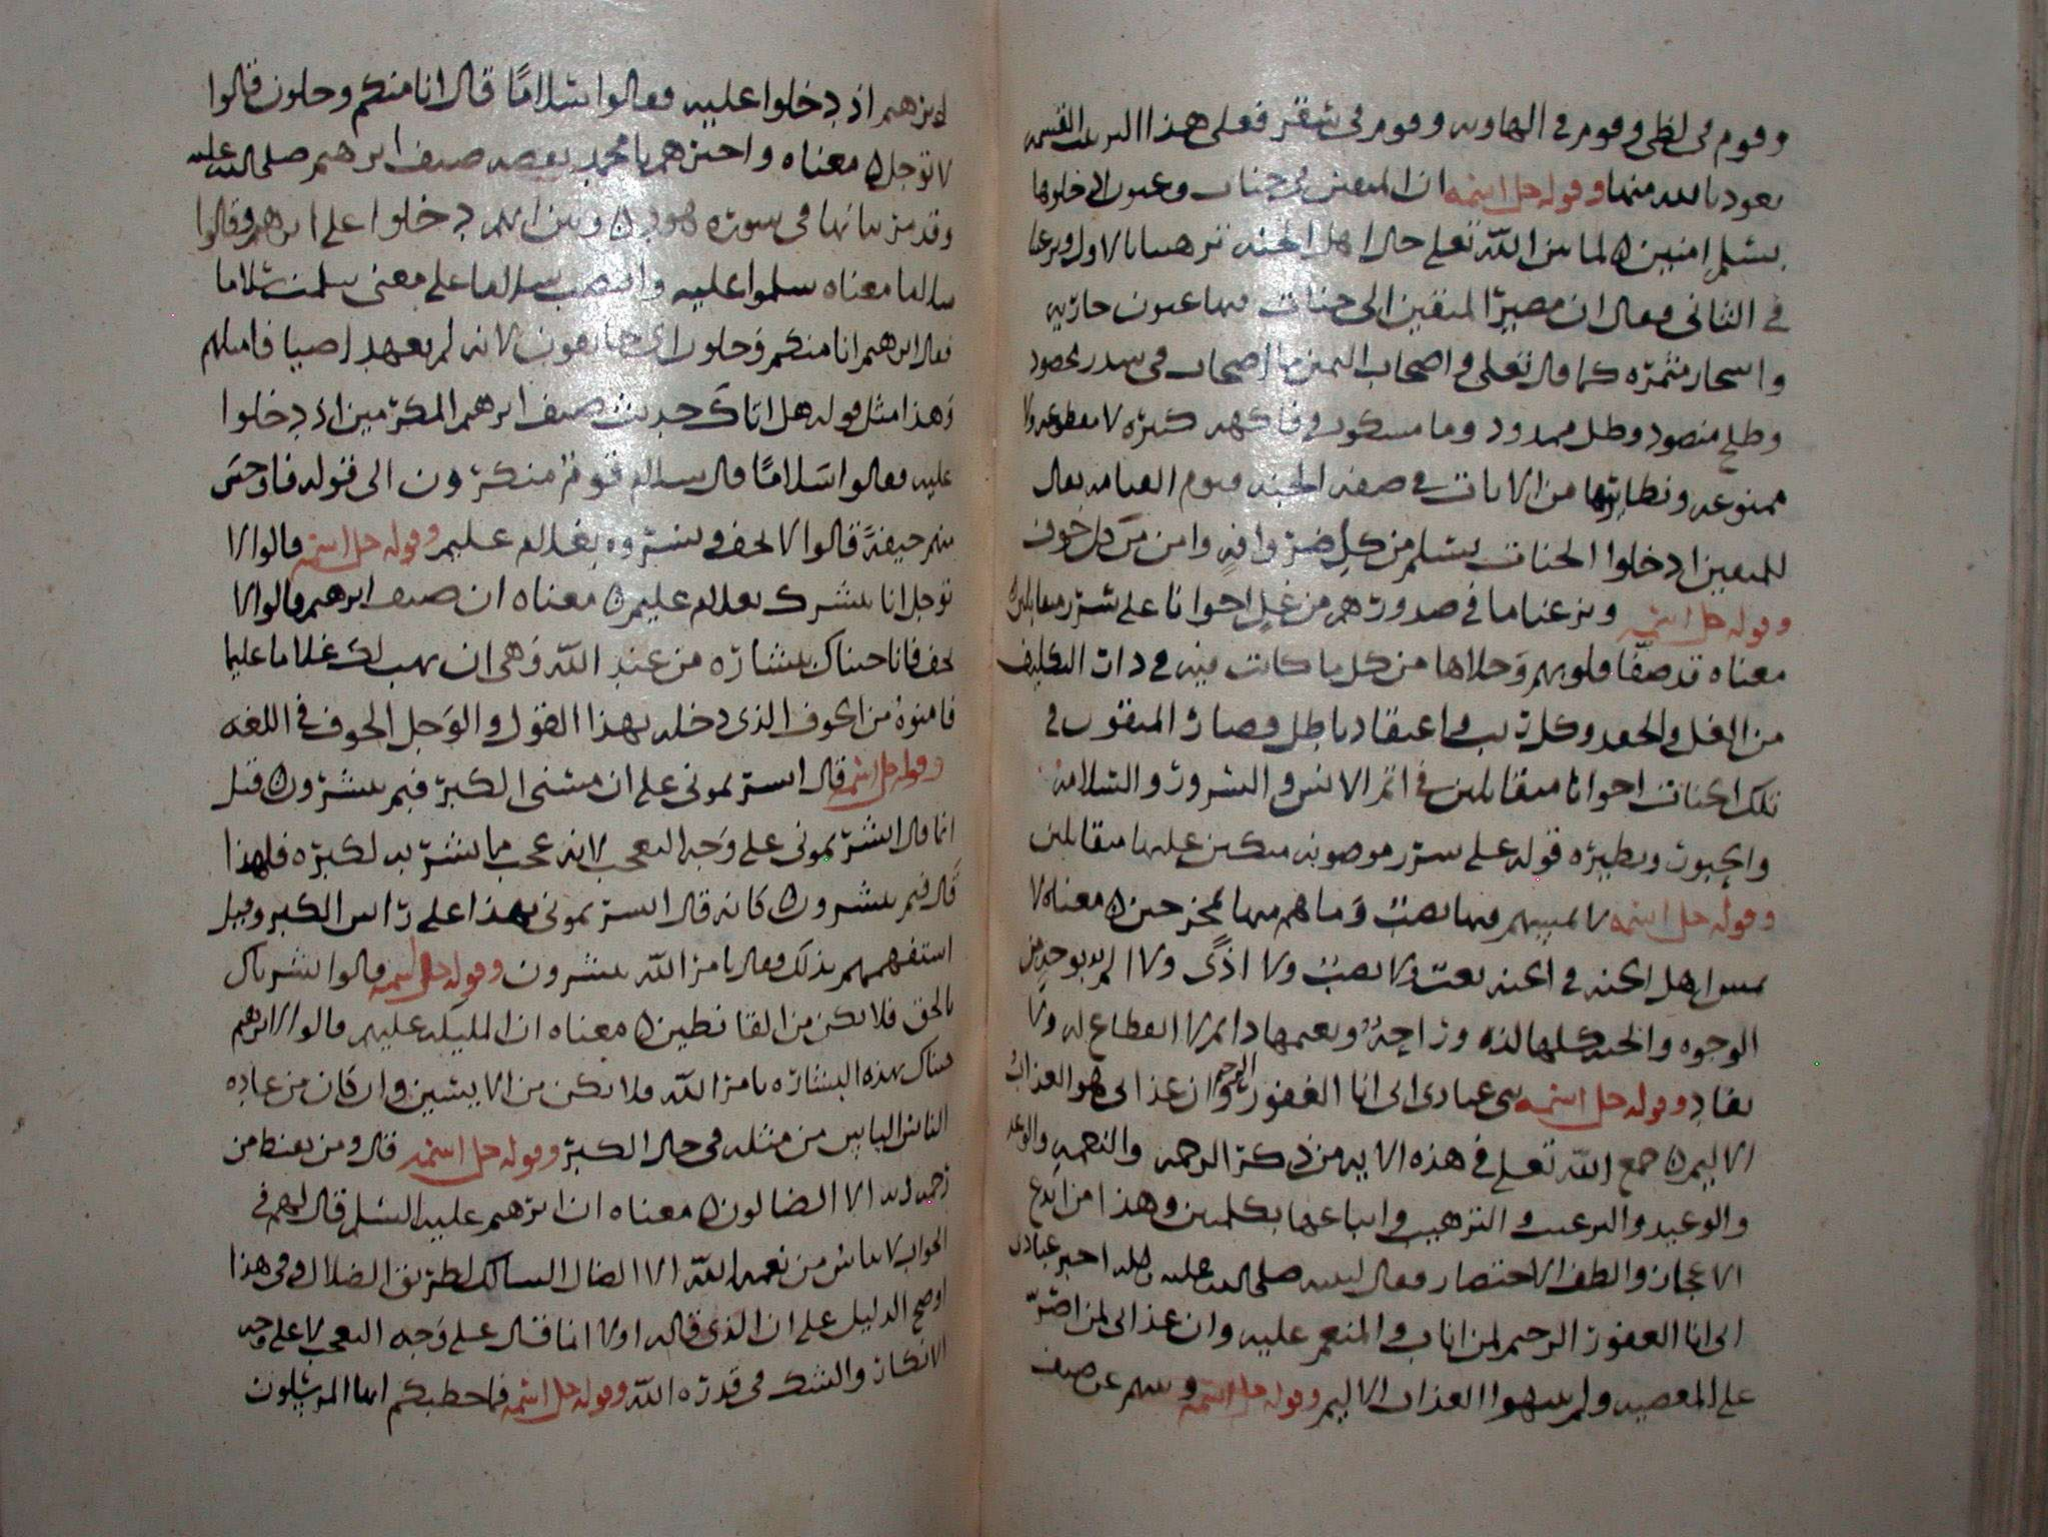 وقوم في لظى وقوم في الهاويه وقوم في سقر فعلى هذا الترتيب القسمه
نعوذ بالله منها وقوله جل اسمه ان المتقين في جنات وعيون ادخلوها
بسلم امنين لما بين الله تعلى حال اهل الجنه ترهيبا بالاول وترغيبا
في الثاني فقال ان مصير المتقين الى جنات فيها عيون جاريه
واشجار مثمره كما قال تعلى واصحاب اليمين ما اصحاب في سدر مخضود
وطلح منضود وظل ممدود وما مسكوب وفاكهه كثيره لا مقطوعه ولا
ممنوعه ونظايرها من الايات في صفه الجنه فيوم القيامه يقال
للمتقين ادخلوا الجنات بسلم من كل ضر وافه وامن من كل خوف
وقوله جل اسمه ونزعنا ما في صدورهم من غل اخوانا على سرر متقابلين
معناه قد صفا قلوبهم وخلاها من كل ما كانت فيه في دار التكليف
من الغل والحقد وكل ريب واعتقاد باطل وصار المتقون في
تلك الجنات اخوانا متقابلين في اتم الانس والسرور والسلامه
والحبور ونظيره قوله على سرر موضونه متكين عليها متقابلين
وقوله جل اسمه لا يمسهم فيها نصب وما هم منها بمخرجين معناه لا
يمس اهل الجنه في الجنه تعب ولا نصب ولا اذى ولا الم بوجه من
الوجوه والجنه كلها لذه وراحه ونعيمها دايم لا انقطاع له ولا
نفاد وقوله جل اسمه نبى عبادي اني انا الغفور الرحيم وان عذابي هو العذاب
الاليم جمع الله تعلى في هذه الايه من ذكر الرحمه والنعمه والوعد
والوعيد والترغيب والترهيب واتباعها بكلمتين وهذا من ابدع
الاعجاز والطف الاختصار فقال لنبيه صلى الله عليه واله اخبر عبادي
اني انا الغفور الرحيم لمن اناب والمنعم عليه وان عذابي لمن اصر
على المعصيه ولم ينتهوا العذاب الاليم وقوله جل اسمه ونبيهم عن ضيف
ابرهيم اذ دخلوا عليه فقالوا سلاما قال انا منكم وجلون قالوا
لا توجل معناه واخبرهم يا محمد بقصه ضيف ابرهيم صلى الله عليه
وقد مر بيانها في سوره هود وبين انهم دخلوا على ابرهيم وقالوا
سلاما معناه سلموا عليه وانتصب سلاما على معنى سلمت سلاما
فقال ابرهيم انا منكم وجلون اي خايفون لانه لم يعهد اضيافا مثلهم
وهذا مثل قوله هل اتاك حديث ضيف ابرهيم المكرمين اذ دخلوا
عليه فقالوا سلاما قال سلام قوم منكرون الى قوله فاوجس
منهم خيفة قالوا لا تخف وبشروه بغلام عليم وقوله جل اسمه قالوا لا
توجل انا نبشرك بغلام عليم معناه ان ضيف ابرهيم قالوا لا
تخف فانا جيناك ببشاره من عند الله وهي ان يهب لك غلاما عليما
فامنوه من الخوف الذي دخله بهذا القول والوجل الخوف في اللغه
وقوله جل اسمه قال ابشرتموني على ان مسني الكبر فبم تبشرون قيل
انما قال ابشرتموني على وجه التعجب لانه عجب مما بشر به لكبره فلهذا
قال فبم تبشرون كانه قال ابشرتموني بهذا على راس الكبر وقيل
استفهمهم بذلك فقال بامر الله تبشرون وقوله جل اسمه قالوا بشرناك
بالحق فلا تكن من القانطين معناه ان المليكه عليهم قالوا لابرهيم
جيناك بهذه البشاره بامر الله فلا تكن من الايسين وان كان من عاده
الناس الياس من مثله في حال الكبر وقوله جل اسمه قال ومن يقنط من
رحمه ربه الا الضالون معناه ان ابرهيم عليه السلم قال لهم في
الجواب لا يياس من نعمه الله الا الضال السالك لطريق الضلال وفي هذا
اوضح الدليل على ان الذي قاله اولا انما قال على وجه التعجب لا على وجه
الانكار والشك في قدره الله وقوله جل اسمه فما خطبكم ايها المرسلون